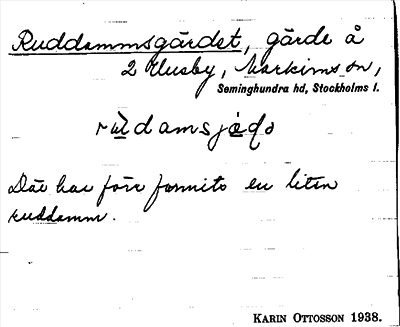 Ruddammsgärdet, gärde å
2 Husby, Markims sn,
Seminghundra hd, Stockholms l.
Där har förr funnits en liten
ruddamm.
KARIN OTTOSSON 1938.